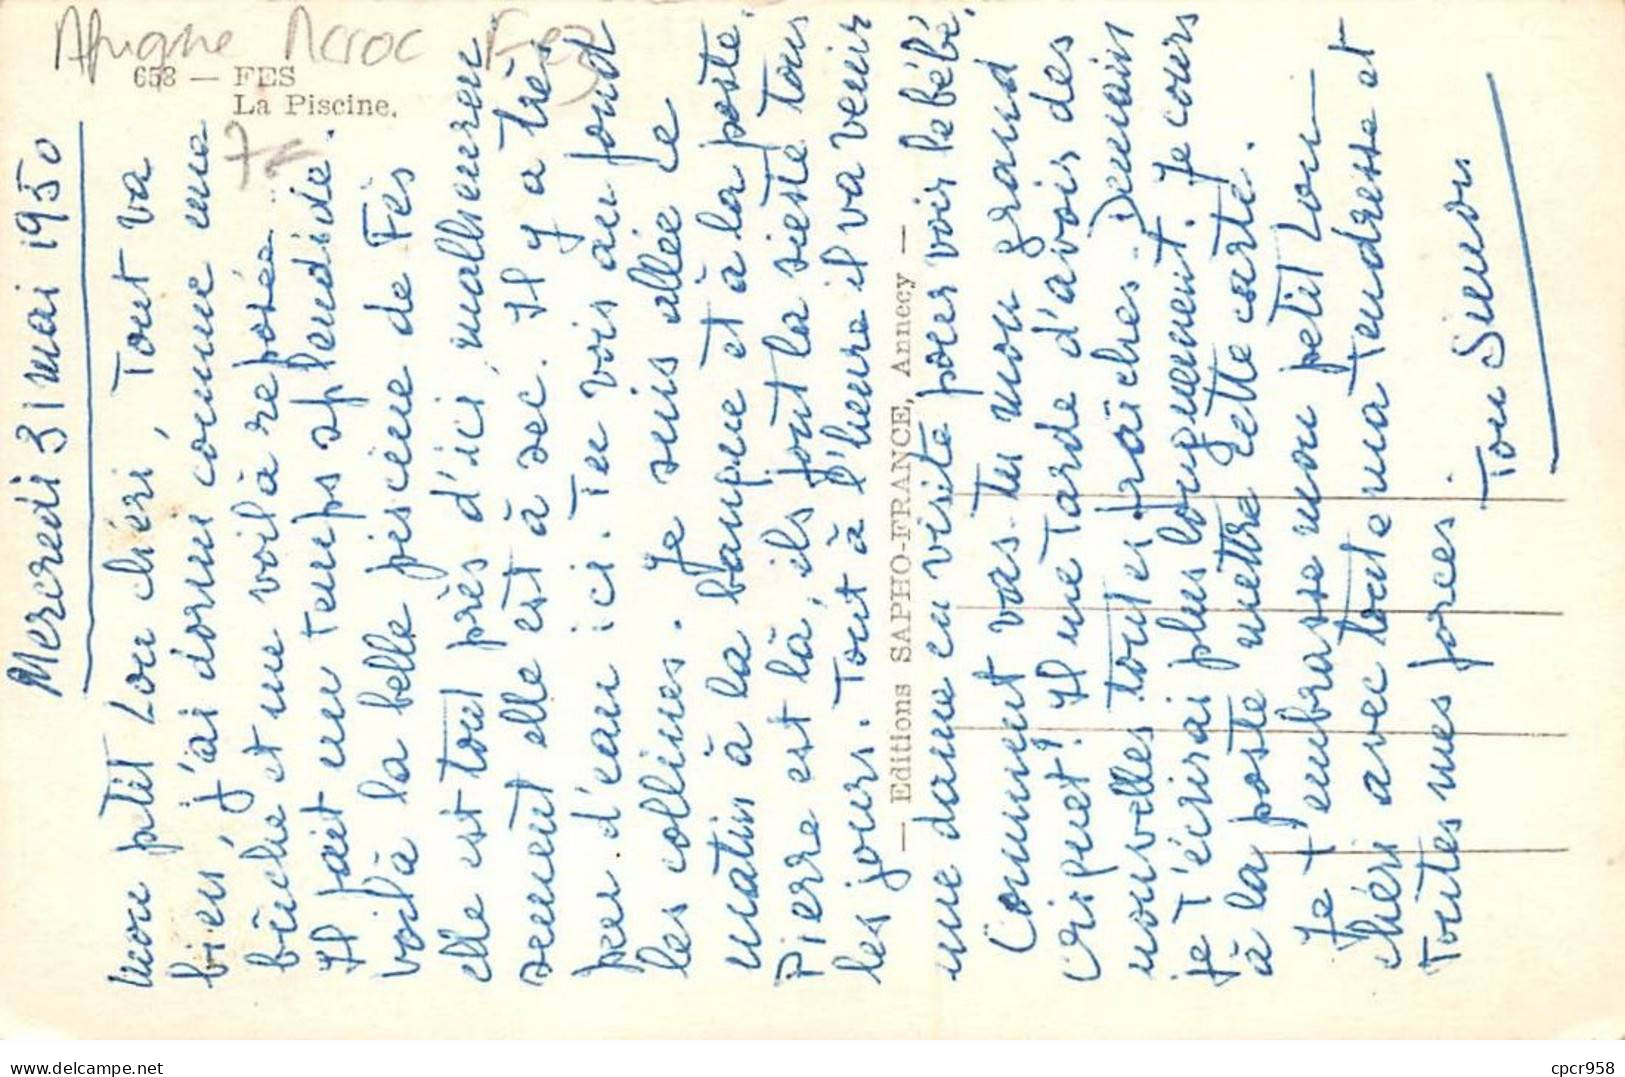 Afrique Maroc Fez
658 — FES
La Piscine.
7€
Mercredi 31 mai 1950
Mon petit Lou chéri, Tout va
bien, j'ai dormi comme une
bûche et me voilà reposée.
Il fait un temps splendide.
Voilà la belle piscine de Fès
elle est tout près d'ici, malheureu
sement elle est à sec. Il y a très
peu d'eau ici. Tu vois au fond
les collines. Je suis allée ce
matin à la banque et à la poste.
Pierre est là, ils font la sieste tous
les jours. Tout à l'heure il va venir
une dame en visite pour voir le bébé.
Comment vas-tu mon grand
Criquet? Il me tarde d'avoir des
nouvelles toutes fraîches. Demain
je t'écrirai plus longuement. Je cours
à la poste mettre cette carte.
Je t'embrasse mon petit Lou
chéri avec toute ma tendresse et
toutes mes forces.
Ton Simon
— Editions SAPHO-FRANCE, Annecy —
cpcr958